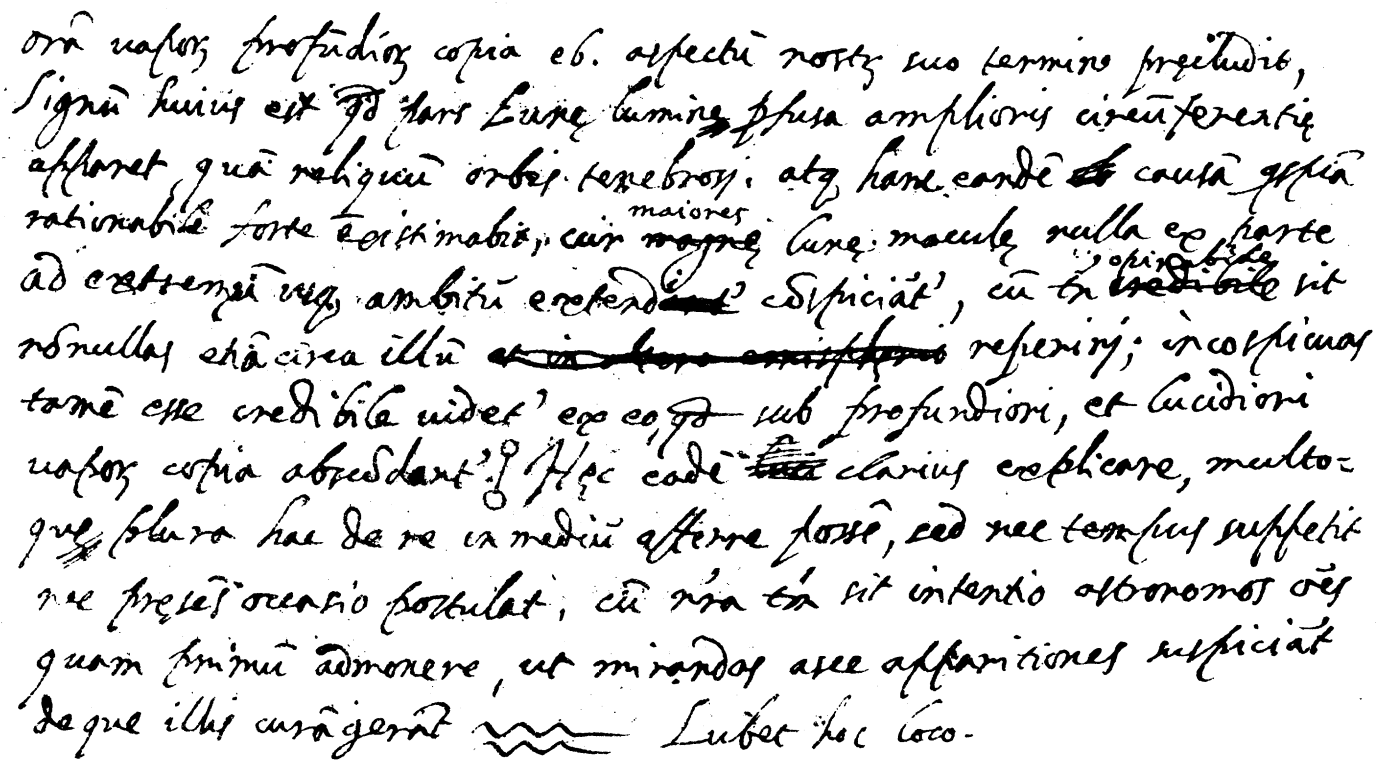 orā vaporꝝ profūdiorꝝ copia eb. aspectū nostrꝝ suo termino pręcludit,
Signū huius est qđ pars Lunę lumine ꝑfusa amplioris circūferentię
apparet, quā reliquū orbis tenebrosi. atqꝫ hanc eandē causā qspiā
rationabilē forte exīstimabit, cur maiores magnę lunę maculę nulla ex parte
ad extremū usqꝫ ambitū extendi cōspiciāt', cū tn̄ opinabile credibile sit
nōnullas etiā circa illū et in altero emispherio reperirj; incospicuas
tamē esse credibile videt' ex eo, qđ sub profundiori, et lucidiori
vaporꝝ copia abscōdant'. Hęc eadē clarius explicare, multo-
que plura hac de re in mediū afferre possē, sed nec tempus suppetit
nec pręsēs occasio postulat, cū nr̄a tn̄ sit intentio astronomos oēs
quam primū admonere, ut mirandas asce apparitiones suspiciāt
deque illis curā gerāt Lubet hoc loco.